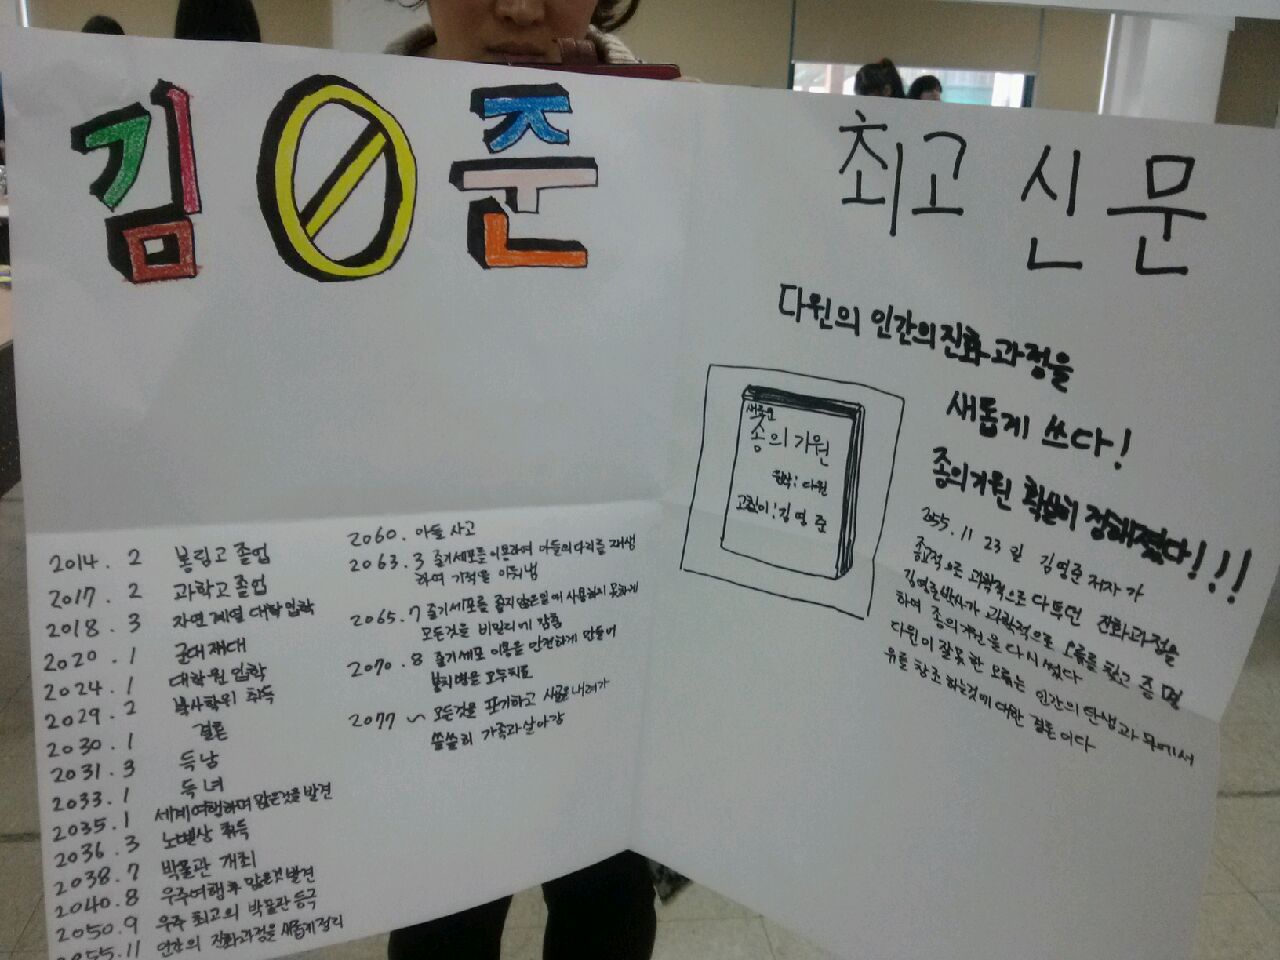 김 0 준
2014. 2 봉림고 졸업
2017. 2 과학고 졸업
2018. 3 자연계열 대학 입학
2020. 1 군대 제대
2024. 1 대학원 입학
2029. 2 박사학위 취득
2030. 1 결혼
2031. 3 득남
2033. 1 득녀
2035. 1 세계여행하며 많은것을 발견
2036. 3 노벨상 취득
2038. 7 박물관 개최
2040. 8 우주여행 후 많은것 발견
2050. 9 우주 최고의 박물관 등극
2055. 11 인간의 진화과정을 새롭게 정리
2060. 아들 사고
2063. 3 줄기세포를 이용하여 아들의 다리를 재생
하여 기적을 이뤄냄
2065. 7 줄기세포를 좋지않은일에 사용하지 못하게
모든것을 비밀리에 감춤
2070. 8 줄기세포 이용을 안전하게 만들어
불치병을 모두치료
2077 ~ 모든것을 포기하고 시골로 내려가
쓸쓸히 가족과 살아감
최고 신문
다윈의 인간의 진화 과정을
새롭게 쓰다!
종의기원 확실히 정해졌다!!!
새로운
종의 기원
원작: 다윈
고친이: 김영준
2055. 11 23일 김영준 저자가
종교적으로 과학적으로 다투던 진화과정을
김영준박사가 과학적으로 오류를 찾고 증명
하여 종의기원을 다시 썼다
다윈이 잘못한 오류는 인간의 탄생과 무에서
유를 창조하는것에 대한 결론이다